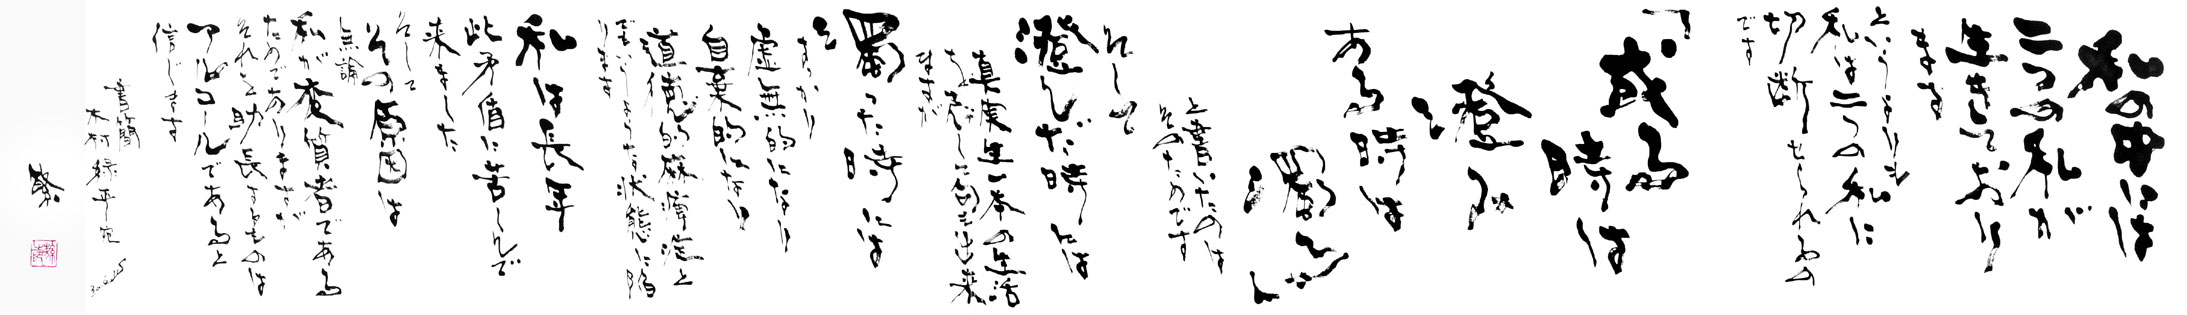 私の中には
二つの私が
生きており
ます
というよりも
私は二つの私に
切断せられるの
です
「或る
時は
澄み
ある時は
濁る」
と書いたのは
そのためです
そして
澄んだ時には
真実生一本の生活
を志し句も出来
ますが
濁った時には
すっかり
虚無的になり
自棄的になり
道徳的麻痺症と
でもいうような状態に陥
ります
私は長年
此矛盾に苦しんで
来ました
そして
その原因は
無論
私が変質者である
ためでありますが
それを助長するものは
アルコールであると
信じます
書簡
木村緑平宛